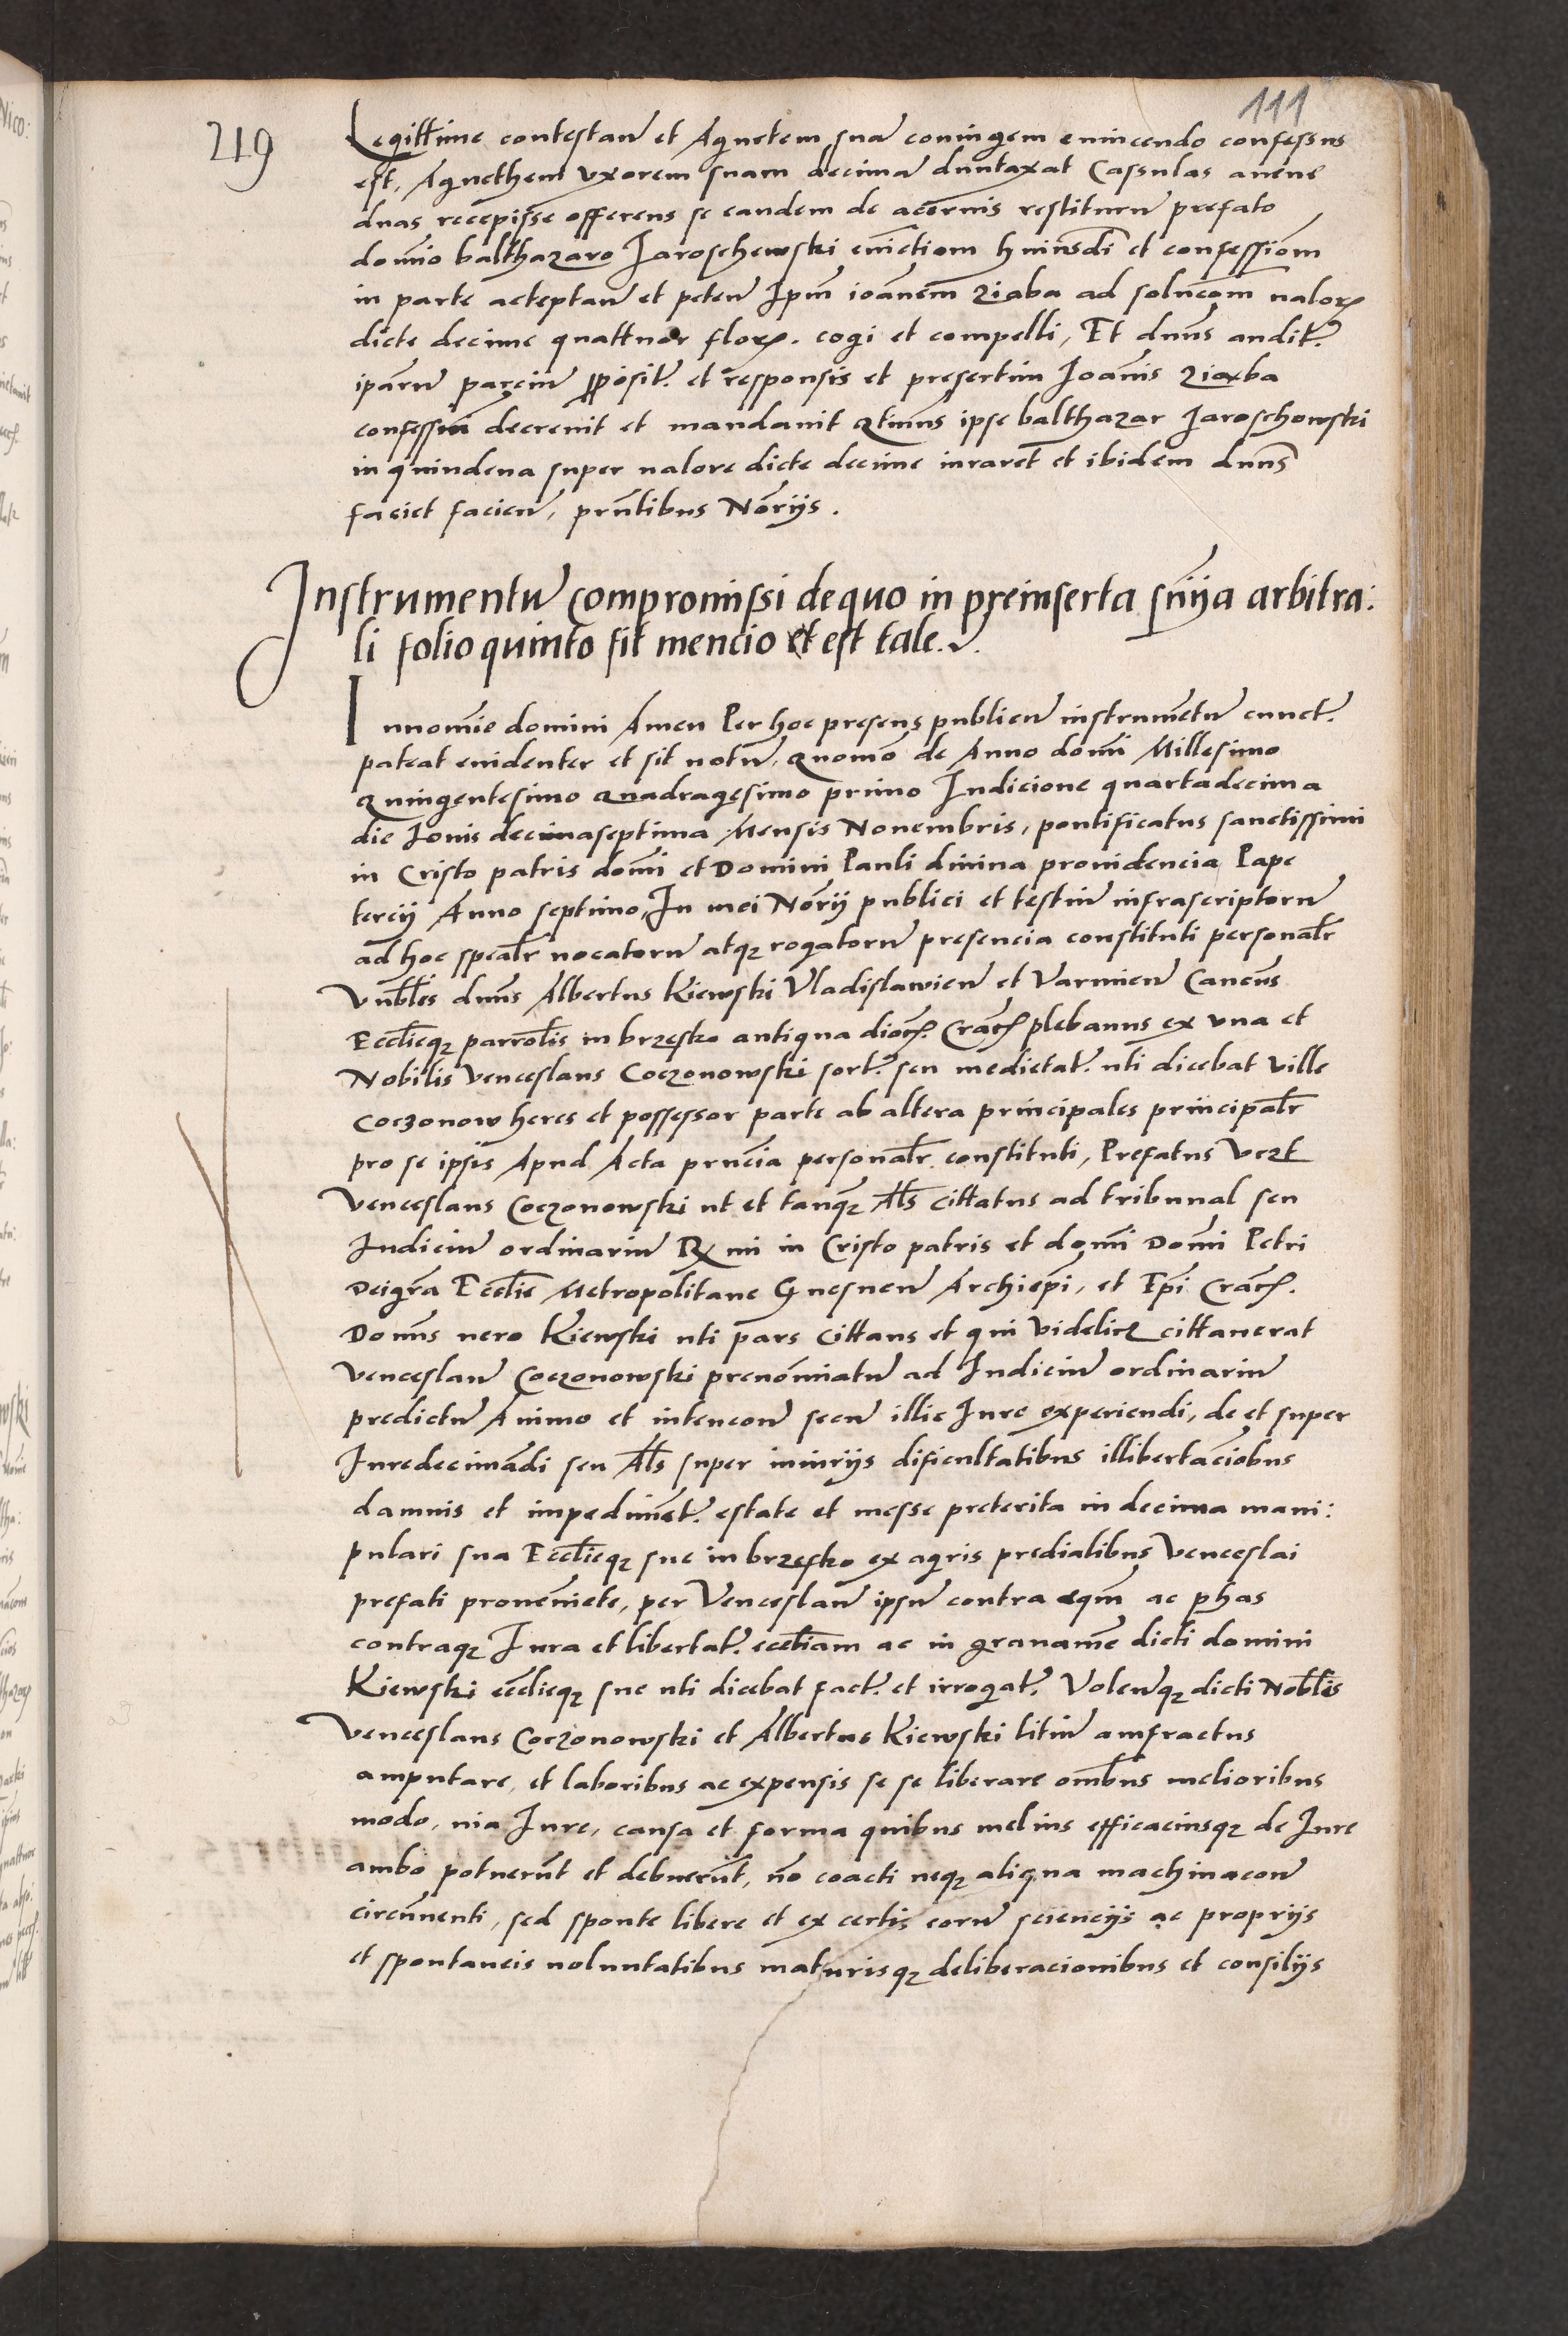 111
219
Legittime contestan̄ et Agnetem suā coniugem euincendo confessus
est, Agnethem vxorem suam decimā duntaxat Cassulas auene
duas recepisse offerens se eandem de aceruis restiturū prefato
domino balthazaro Jaroschewski euictiom huiusdi et confessiom
in parte acceptan̄ et peten̄ Ipm̄ ioannem Ziaba ad solucom valorꝝ
dicte decime quattuor florꝝ. cogi et compelli, Et dn̄us audit.
iparū parciū pposit. et responsis et presertim Joannis Ziaba
confessioni decreuit et mandauit qtinus ipse balthazar Jaroschowski
in quindena super valore dicte decime iuraret et ibidem dn̄us
faciet facien̄, prn̄tibus Noriis.
Instrumentū compromissi de quo in preinserta sn̄iia arbitra:
li folio quinto fit mencio et est tale.
Innomīe domini Amen Per hoc presens publicū instrumētū cunct.
pateat euidenter et sit notū, Quomō de Anno domī Millesimo
Quingentesimo quadragesimo primo Indicione quartadecima
die Iouis decimaseptima Mensis Nouembris, pontificatus sanctissimi
in Cristo patris domī et Domini Pauli diuina prouidencia Pape
tercij Anno septimo, In mei Norij publici et testiū infrascriptorū
ad hoc spealr̄ vocatorū atqꝫ rogatorū presencia constituti personalr̄
Vn̄bles dn̄us Albertus Kiewski Vladislauien̄ et Varmien̄ Canc̄us
Ecclieqꝫ parrolis in brzesko antiqua dioc. Crac. plebanus ex vna et
Nobilis Venceslaus Coczonowski sort. seu medietat. uti dicebat ville
Coczonow heres et possessor parte ab altera principales principalr̄
pro se ipsis Apud Acta prn̄cia personalr̄ constituti, Prefatus Vezt
Venceslaus Coczonowski ut et tanqꝫ Als̄ cittatus ad tribunal seu
Iudiciū ordinariū Rx̄mi in Cristo patris et domī Domī Petri
Deigrā Ecclie Metropolitane Gnesnen̄ Archiepī, et Epī Crac.
Domus vero Kiewski uti pars cittans et qui videlicꝫ cittauerat
Venceslaū Coczonowski prenominatū ad Iudiciū ordinariū
predictū Animo et intencon̄ secū illic Iure experiendi, de et super
Iuredecimādi seu Als̄ super iniuriis dificultatibus illibertaciōbus
damnis et impedimēt. estate et messe preterita in decima mani:
pulari sua Ecclieqꝫ sue in brzesko ex agris predialibus Venceslai
prefati proueniēte, per Venceslaū ipsū contra eqm̄ ac phas
contraqꝫ Iura et libertat. eccliam ac in grauamē dicti domini
Kiewski ecclieqꝫ sue uti dicebat fact. et irrogat. Volen̄qꝫ dicti Nobles
Venceslaus Coczonowski et Albertus Kiewski litiū amfractus
amputare, et laboribus ac expensis se se liberare omībus melioribus
modo, uia Iure, causa et forma quibus melius efficaciusqꝫ de Iure
ambo potuerūt et debuerūt, nō coacti neqꝫ aliqua machinacon̄
circūuenti, sed sponte libere et ex certis eorū sciencijs ac proprijs
et spontaneis voluntatibus maturisqꝫ deliberacionibus et consilijs